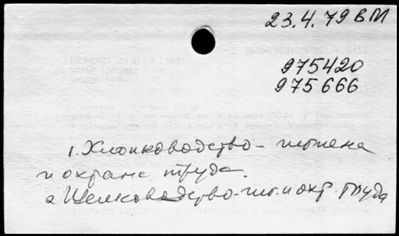 23.4.79 ВМ
975420
975666
1. Хлопководство - гигиена
и охрана труда.
а Шелководство - гиг. и охр. труда